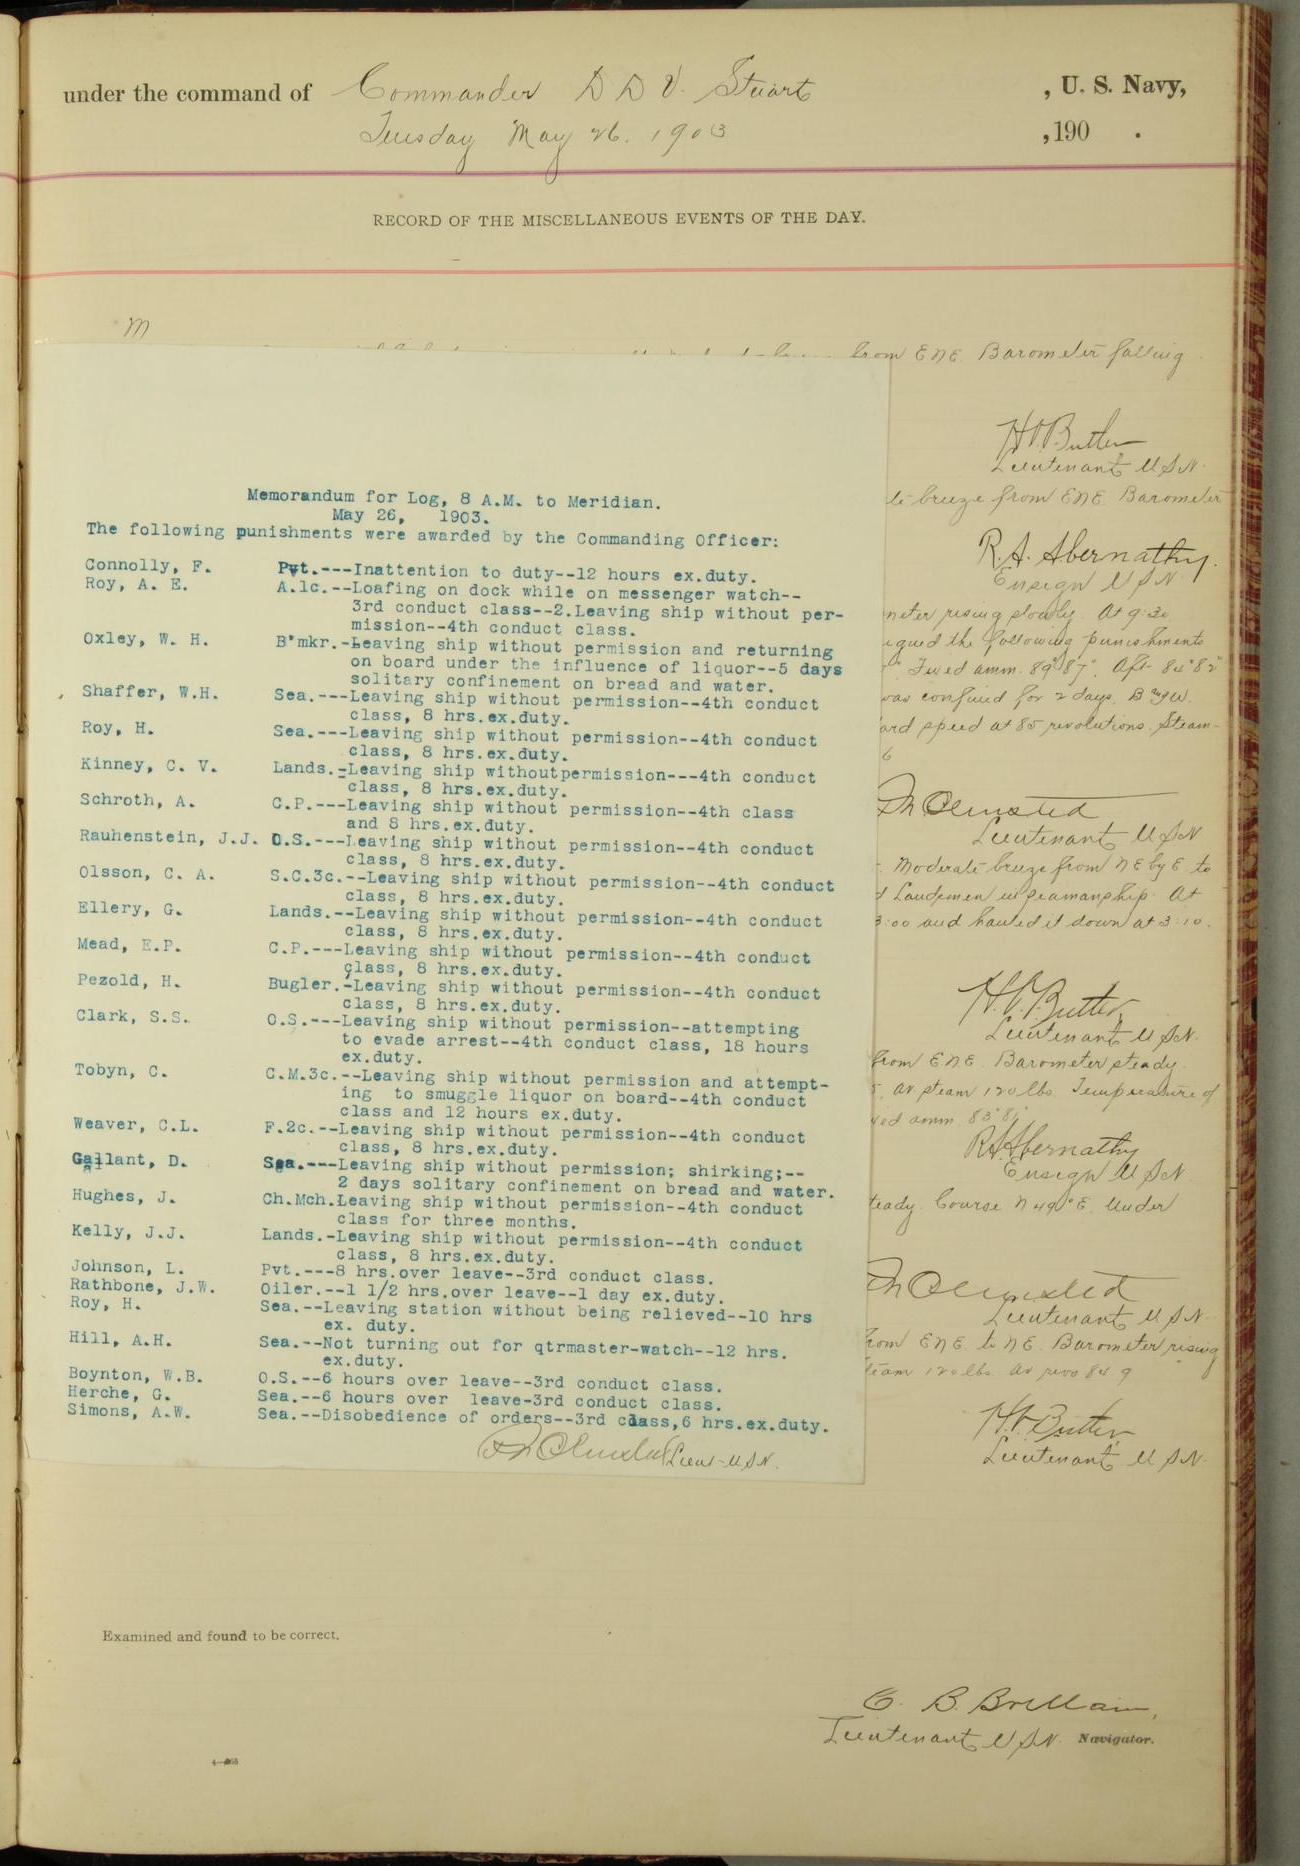 under the command of Commander D D V. Stuart , U. S. Navy,
Tuesday May 26. 1903 ,190 .
RECORD OF THE MISCELLANEOUS EVENTS OF THE DAY.
M
from ENE. Barometer falling
Lieutenant USN.
breeze from ENE Barometer
R. A. Abernathy.
Ensign USN
rising slowly. At 9:30
the following punishments
Fixed amm. 89° 87°. Aft 84° 82°
was confined for 2 days. B & W.
speed at 85 revolutions. Steam-
6
Olmsted
Lieutenant USN
Moderate breeze from NE by E to
Landsmen in seamanship. At
3:00 and hauled it down at 3:10.
H. V. Butler
Lieutenant USN.
from ENE. Barometer steady.
av steam 120 lbs. Temperature of
amm 83° 81°
R A Abernathy
Ensign USN
Course N 49° E. Under
Olmsted
Lieutenant USN.
from ENE to NE. Barometer rising
120 lbs. av revo 84.9
H. V. Butler
Lieutenant USN.
Memorandum for Log, 8 A.M. to Meridian.
May 26, 1903.
The following punishments were awarded by the Commanding Officer:
Connolly, F. Pvt.---Inattention to duty--12 hours ex.duty.
Roy, A. E. A.1c.--Loafing on dock while on messenger watch--
3rd conduct class--2.Leaving ship without per-
mission--4th conduct class.
Oxley, W. H. B'mkr.-Leaving ship without permission and returning
on board under the influence of liquor--5 days
solitary confinement on bread and water.
Shaffer, W.H. Sea.---Leaving ship without permission--4th conduct
class, 8 hrs.ex.duty.
Roy, H. Sea.---Leaving ship without permission--4th conduct
class, 8 hrs.ex.duty.
Kinney, C. V. Lands.-Leaving ship withoutpermission---4th conduct
class, 8 hrs.ex.duty.
Schroth, A. C.P.---Leaving ship without permission--4th class
and 8 hrs.ex.duty.
Rauhenstein, J.J. O.S.---Leaving ship without permission--4th conduct
class, 8 hrs.ex.duty.
Olsson, C. A. S.C.3c.--Leaving ship without permission--4th conduct
class, 8 hrs.ex.duty.
Ellery, G. Lands.--Leaving ship without permission--4th conduct
class, 8 hrs.ex.duty.
Mead, E.P. C.P.---Leaving ship without permission--4th conduct
class, 8 hrs.ex.duty.
Pezold, H. Bugler.-Leaving ship without permission--4th conduct
class, 8 hrs.ex.duty.
Clark, S.S. O.S.---Leaving ship without permission--attempting
to evade arrest--4th conduct class, 18 hours
ex.duty.
Tobyn, C. C.M.3c.--Leaving ship without permission and attempt-
ing to smuggle liquor on board--4th conduct
class and 12 hours ex.duty.
Weaver, C.L. F.2c.--Leaving ship without permission--4th conduct
class, 8 hrs.ex.duty.
Gallant, D. Sea.---Leaving ship without permission; shirking;--
2 days solitary confinement on bread and water.
Hughes, J. Ch.Mch.Leaving ship without permission--4th conduct
class for three months.
Kelly, J.J. Lands.-Leaving ship without permission--4th conduct
class, 8 hrs.ex.duty.
Johnson, L. Pvt.---8 hrs.over leave--3rd conduct class.
Rathbone, J.W. Oiler.--1 1/2 hrs.over leave--1 day ex.duty.
Roy, H. Sea.--Leaving station without being relieved--10 hrs
ex. duty.
Hill, A.H. Sea.--Not turning out for qtrmaster-watch--12 hrs.
ex.duty.
Boynton, W.B. O.S.--6 hours over leave--3rd conduct class.
Herche, G. Sea.--6 hours over leave-3rd conduct class.
Simons, A.W. Sea.--Disobedience of orders--3rd class,6 hrs.ex.duty.
Olmsted Lieut. U.S.N.
Examined and found to be correct.
C. B. Brittain,
Lieutenant USN. Navigator.